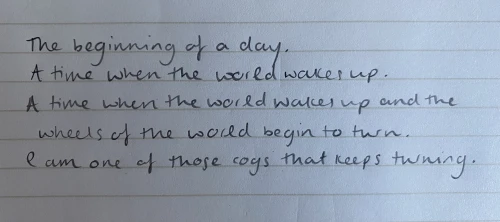 The beginning of a day.
A time when the world wakes up.
A time when the world wakes up and the
wheels of the world begin to turn.
I am one of those cogs that keeps turning.